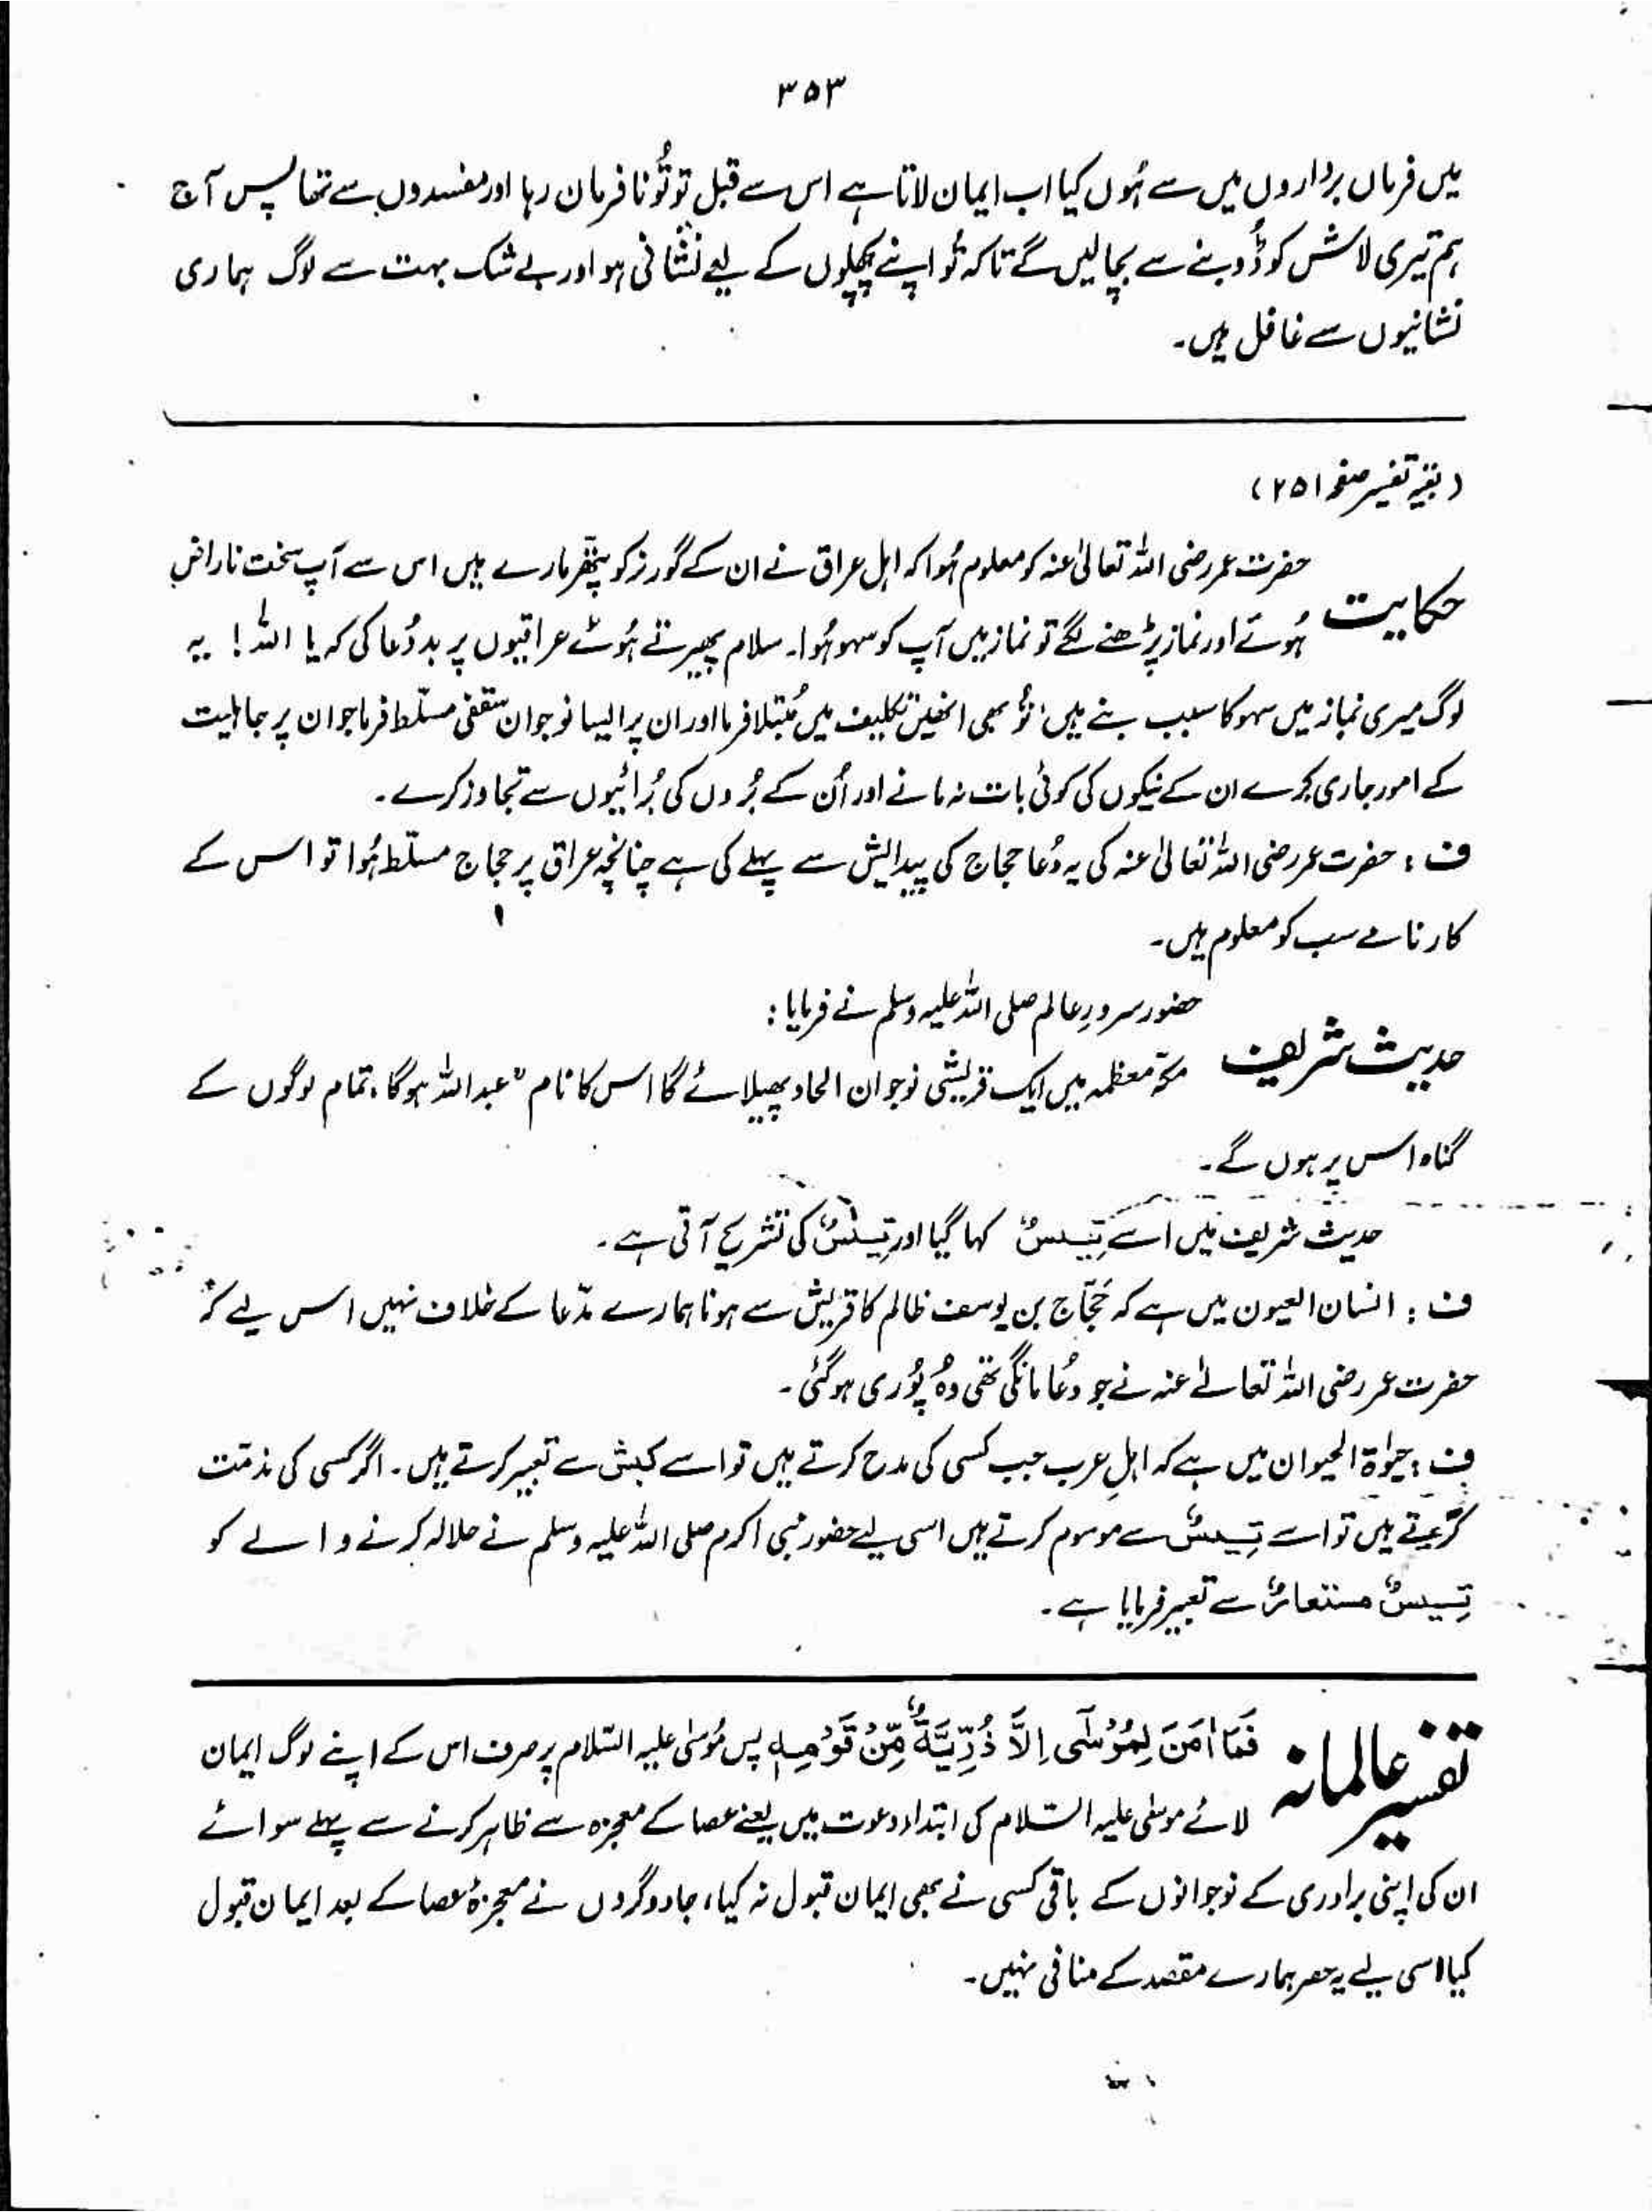 ۳۵۳
میں فرماں برداروں میں سے ہُوں کیا اب ایمان لاتا ہے اس سے قبل تو تُو نافرمان رہا اور مفسدوں سے تھا پس آج
ہم تیری لاش کو ڈُوبنے سے بچالیں گے تاکہ تُو اپنے پچھلوں کے لیے نشانی ہو اور بے شک بہت سے لوگ ہماری
نشانیوں سے غافل ہیں۔
(بقیہ تفسیر صفحہ ۲۵۱)
حکایت
حضرت عمر رضی اللہ تعالیٰ عنہ کو معلوم ہُوا کہ اہل عراق نے ان کے گورنر کو پتھّر مارے ہیں اس سے آپ سخت ناراض
ہُوئے اور نماز پڑھنے لگے تو نماز میں آپ کو سہو ہُوا۔ سلام پھیرتے ہُوئے عراقیوں پر بددُعا کی کہ یا اللہ! یہ
لوگ میری نماز میں سہو کا سبب بنے ہیں، تُو بھی انھیں تکلیف میں مُبتلا فرما اور ان پر ایسا نوجوان ثقفی مسلّط فرما جو ان پر جاہلیت
کے امور جاری کرے ان کے نیکوں کی کوئی بات نہ مانے اور اُن کے بُروں کی بُرائیوں سے تجاوز کرے۔
ف : حضرت عمر رضی اللہ تعالیٰ عنہ کی یہ دُعا حجاج کی پیدائش سے پہلے کی ہے چنانچہ عراق پر حجاج مسلّط ہُوا تو اس کے
کارنامے سب کو معلوم ہیں۔
حدیث شریف
حضور سرورِ عالم صلی اللہ علیہ وسلم نے فرمایا :
مکّہ معظمہ میں ایک قریشی نوجوان الحاد پھیلائے گا اس کا نام "عبداللہ ہوگا، تمام لوگوں کے
گناہ اس پر ہوں گے۔
حدیث شریف میں اسے تِیسٌ کہا گیا اور تِیسٌ کی تشریح آتی ہے۔
ف : انسان العیون میں ہے کہ حَجّاج بن یوسف ظالم کا قریش سے ہونا ہمارے مدّعا کے خلاف نہیں اس لیے کہ
حضرت عمر رضی اللہ تعالےٰ عنہ نے جو دُعا مانگی تھی وہُ پُوری ہوگئی۔
ف : حیٰوۃ الحیوان میں ہے کہ اہلِ عرب جب کسی کی مدح کرتے ہیں تو اسے کبش سے تعبیر کرتے ہیں۔ اگر کسی کی مذمّت
کرتے ہیں تو اسے تِیسٌ سے موسوم کرتے ہیں اسی لیے حضور نبی اکرم صلی اللہ علیہ وسلم نے حلالہ کرنے والے کو
تِیسٌ مستعارٌ سے تعبیر فرمایا ہے۔
تفسیر عالمانہ
فَمَآ اٰمَنَ لِمُوْسٰٓی اِلَّا ذُرِّیَّةٌ مِّنْ قَوْمِهٖ پس مُوسیٰ علیہ السّلام پر صرف اس کے اپنے لوگ ایمان
لائے موسیٰ علیہ السّلام کی ابتداء دعوت میں یعنے عصا کے معجزہ سے ظاہر کرنے سے پہلے سوائے
ان کی اپنی برادری کے نوجوانوں کے باقی کسی نے بھی ایمان قبول نہ کیا، جادوگردوں نے معجزۂ عصا کے بعد ایمان قبول
کیا اسی لیے یہ حصر ہمارے مقصد کے منافی نہیں۔